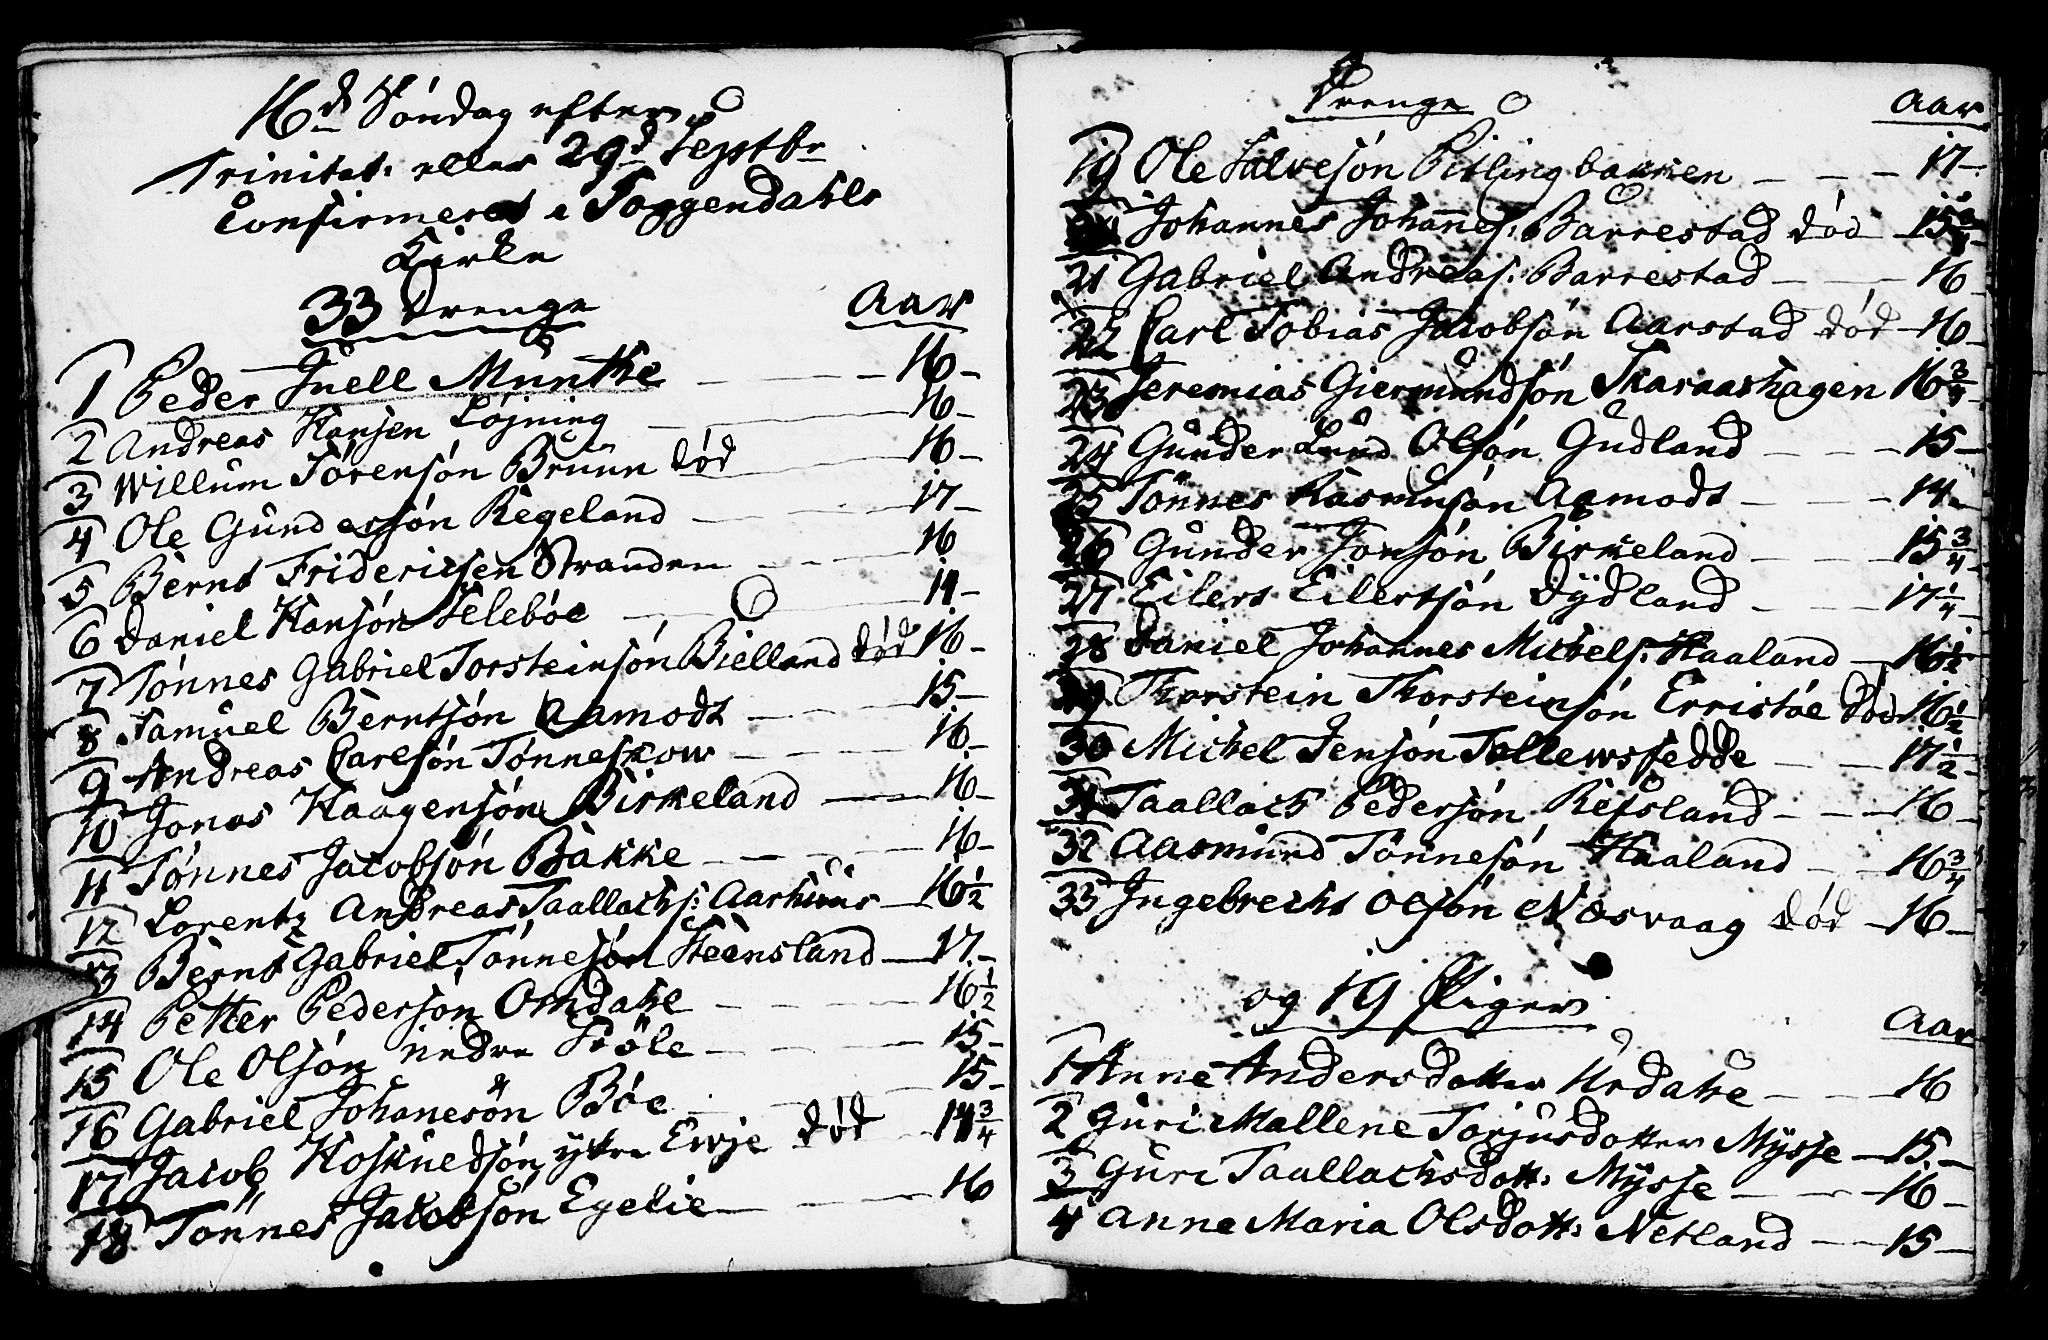 16d Søndag efter
Trinitat: eller 29d Septbr
Confirmeret i Soggendahls
Kirke
33 Drenge Aar
1 Peder Juell Munthe 16
2 Andreas Hansen Løjning 16
3 Willum Sørensøn Bruun død 16
4 Ole Gundersøn Regeland 17
5 Bernt Fridericsen Stranden 16
6 Daniel Hansøn Selebøe 14
7 Tønnes Gabriel Torsteinsøn Bielland død 16
8 Samuel Berntsøn Aamodt 15
9 Andreas Carlsøn Tønneskow 16
10 Jonas Haagensøn Birkeland 16
11 Tønnes Jacobsøn Bakke 16
12 Lorentz Andreas Taallachs: Aarhuus 16 1/2
13 Bernt Gabriel Tønnesøn Steensland 17
14 Petter Pedersøn Omdahl 16 1/2
15 Ole Olsøn nedre 15
16 Gabriel Johanesøn Bøe 15
17 Jacob Hoskuedsøn ytre Ewje død 14 3/4
18 Tønnes Jacobsøn Egelie 16
Drenge Aar
19 Ole Salvesøn Pitlingbakken 17
Johannes Johannes: Barrestad død 15 3/4
21 Gabriel Andreas: Barrestad 16
22 Carl Tobias Jacobsøn Aarstad død 16
23 Jeremias Giermundsøn Skaraashagen 16 3/4
24 Gunder Lund Olsøn Gudland 15
25 Tønnes Rasmusøn Aamodt 14
26 Gunder Jonsøn Birkeland 15 3/4
27 Eilert Eilertsøn Dydland 17 1/4
28 Daniel Johannes Michels: Haaland 16 1/2
29 Thorstein Thorsteinsøn Erristøe død 16 1/2
30 Michel Jensøn Tellewsfedde 17 1/2
31 Taallach Pedersøn Refsland 16
32 Aasmund Tønnesøn Haaland 16 3/4
33 Ingebrecht Olsøn Næsvaag død 16
og 19 Piger
Aar
1 Anne Andersdotter Urdahl 16
2 Guri Mallene Torjusdotter Mysse 15
3 Guri Taallachsdott: Mysse 16
4 Anne Maria Olsdott: Netland 15